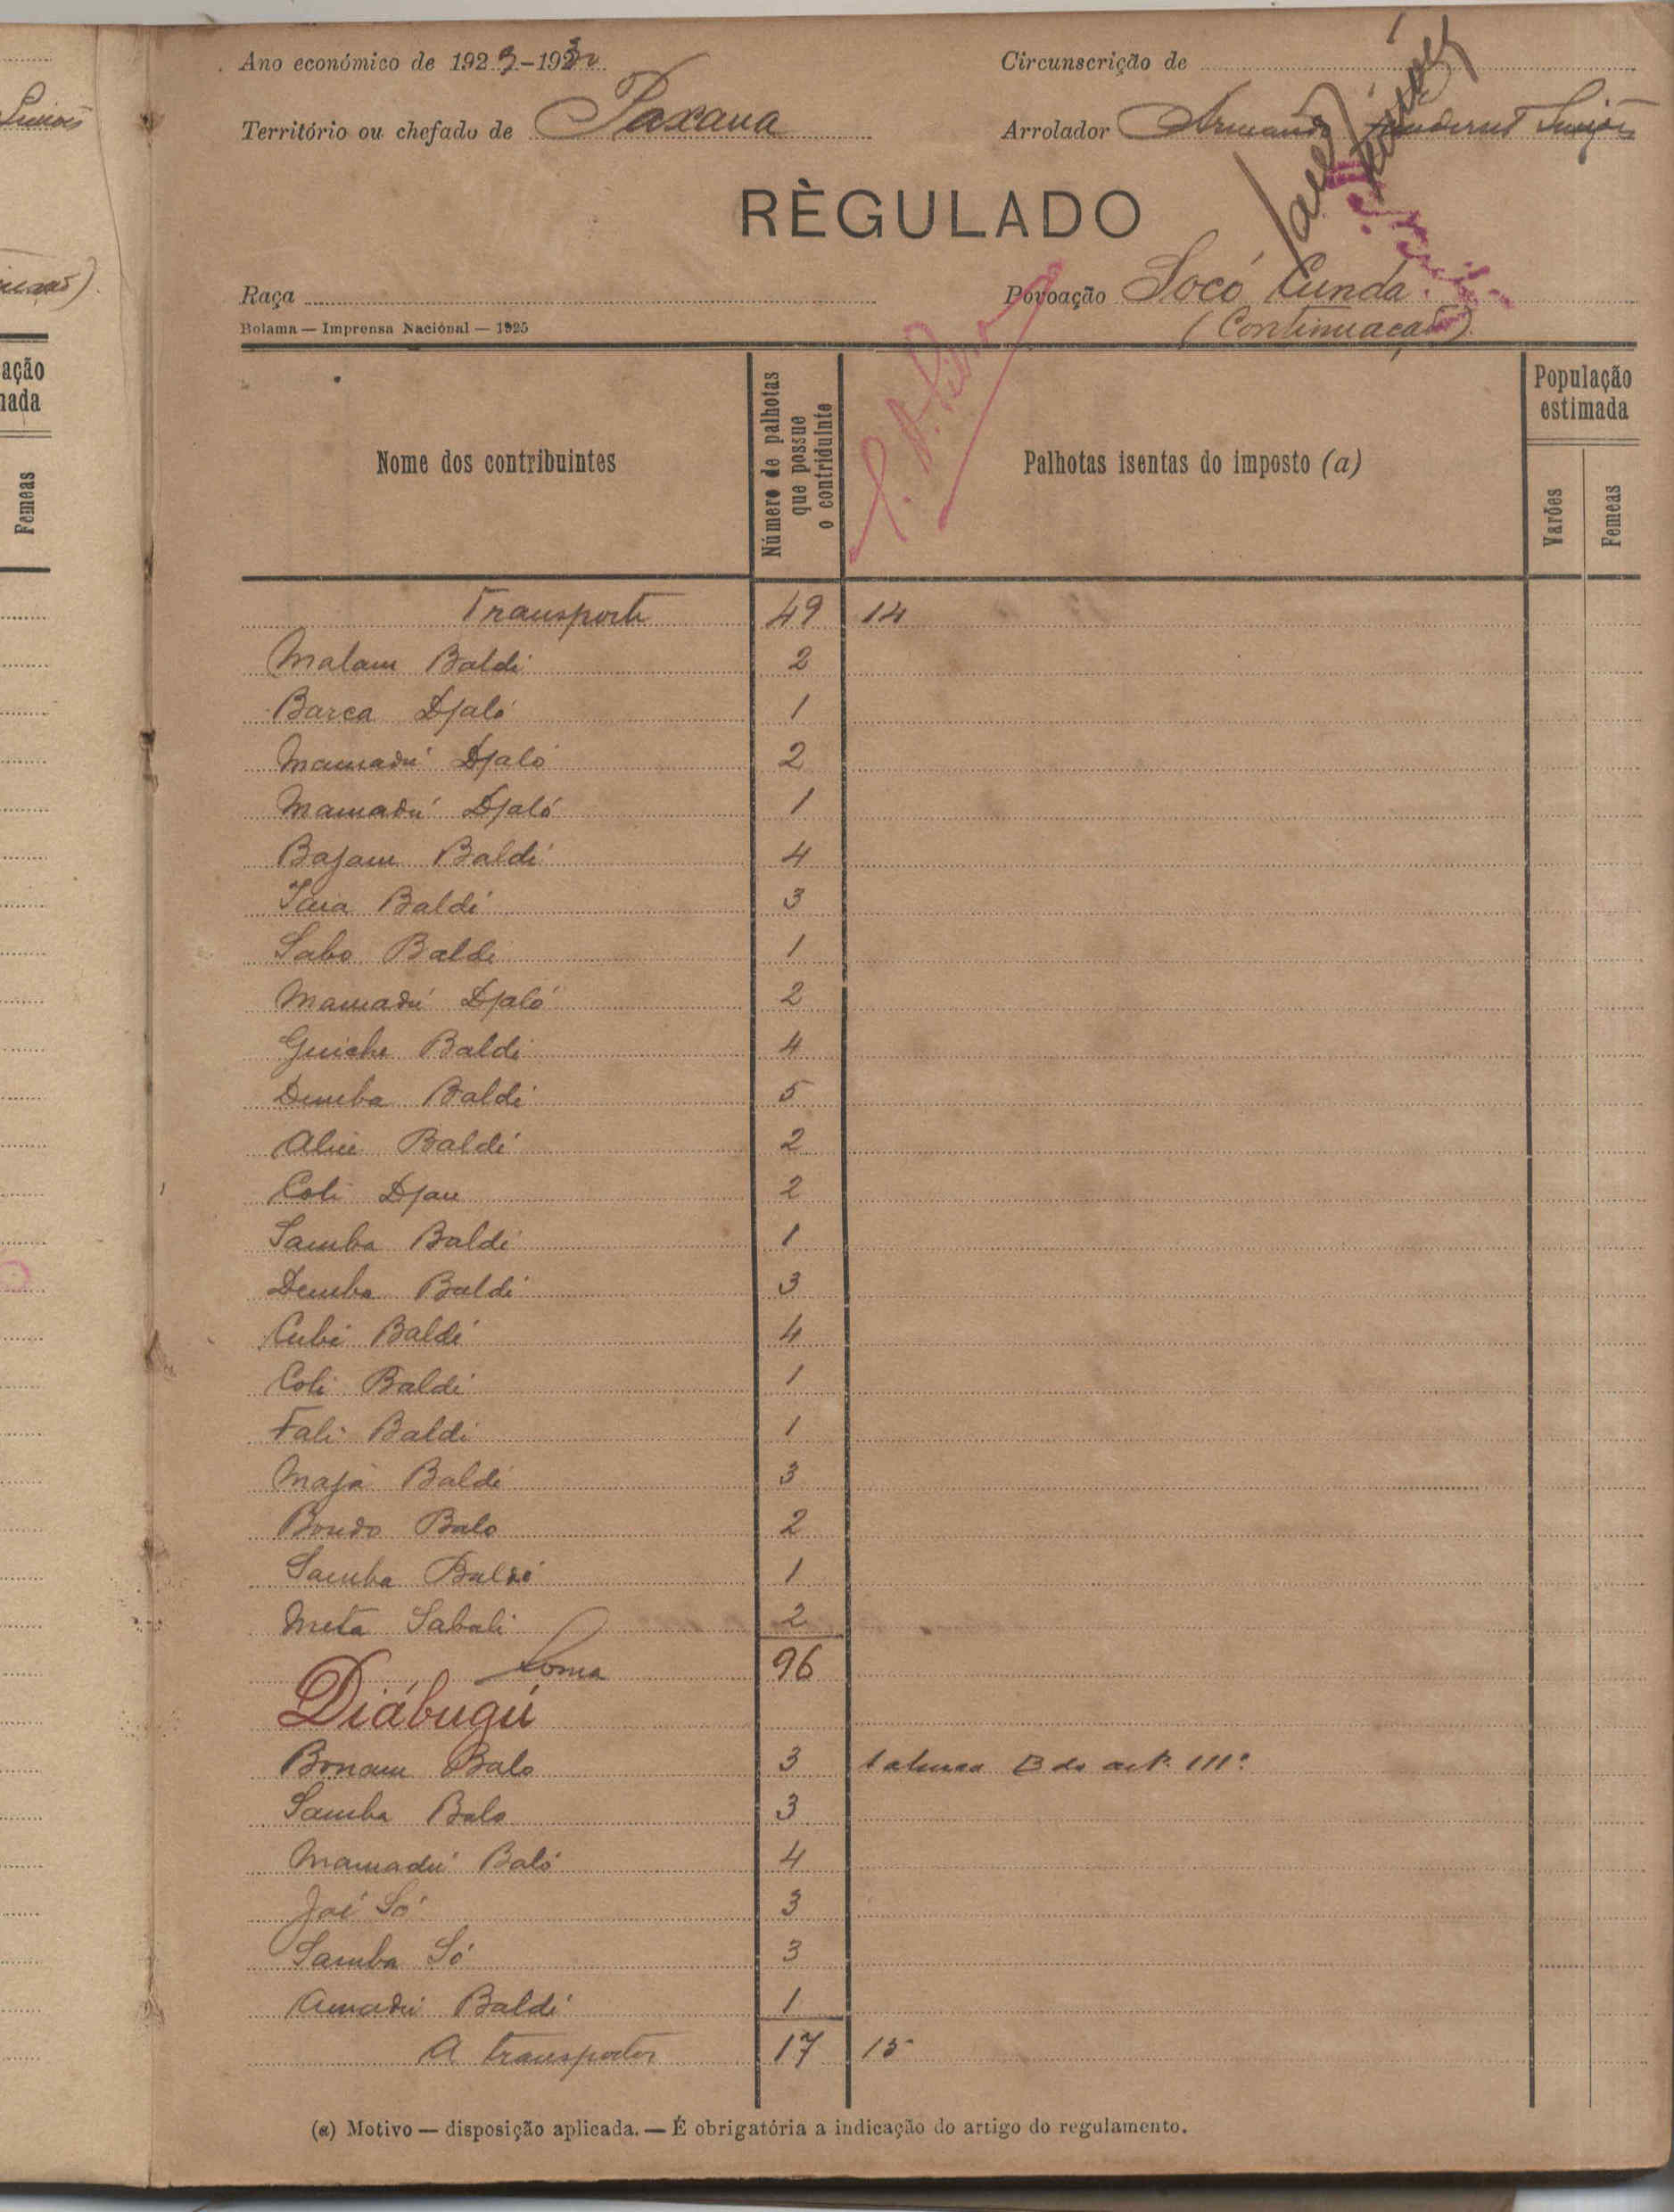 Ano económico de 1929-1930
Circunscrição de
Território ou chefado de Paxana
Arrolador Armando
RÈGULADO
Raça
Povoação Socó Cunda
(Continuação).
Bolama — Imprensa Nacional — 1925
Nome dos contribuintes
Número de palhotas
que possue
o contriduinte
Palhotas isentas do imposto (a)
População
estimada
Varões
Femeas
Transporte 49 14
Malam Baldé 2
Barca Djaló 1
Mamadú Djaló 2
Mamadú Djaló 1
Bajam Baldé 4
Iaia Baldé 3
Sabo Baldé 1
Mamadú Djaló 2
Guiche Baldé 4
Demba Baldé 5
Aliu Baldé 2
Coli Djau 2
Samba Baldé 1
Demba Baldé 3
Cubi Baldé 4
Coli Baldé 1
Fali Baldé 1
Majá Baldé 3
Bondo Balo 2
Samba Baldé 1
Meta Sabali 2
Soma 96
Diábugú
Bonam Balo 3 1 alinea B do art. 111º
Samba Balo 3
Mamadú Baló 4
Joi Só 3
Samba Só 3
Amadú Baldé 1
A transportar 17 15
(a) Motivo — disposição aplicada. — É obrigatória a indicação do artigo do regulamento.
ação
nada
Femeas